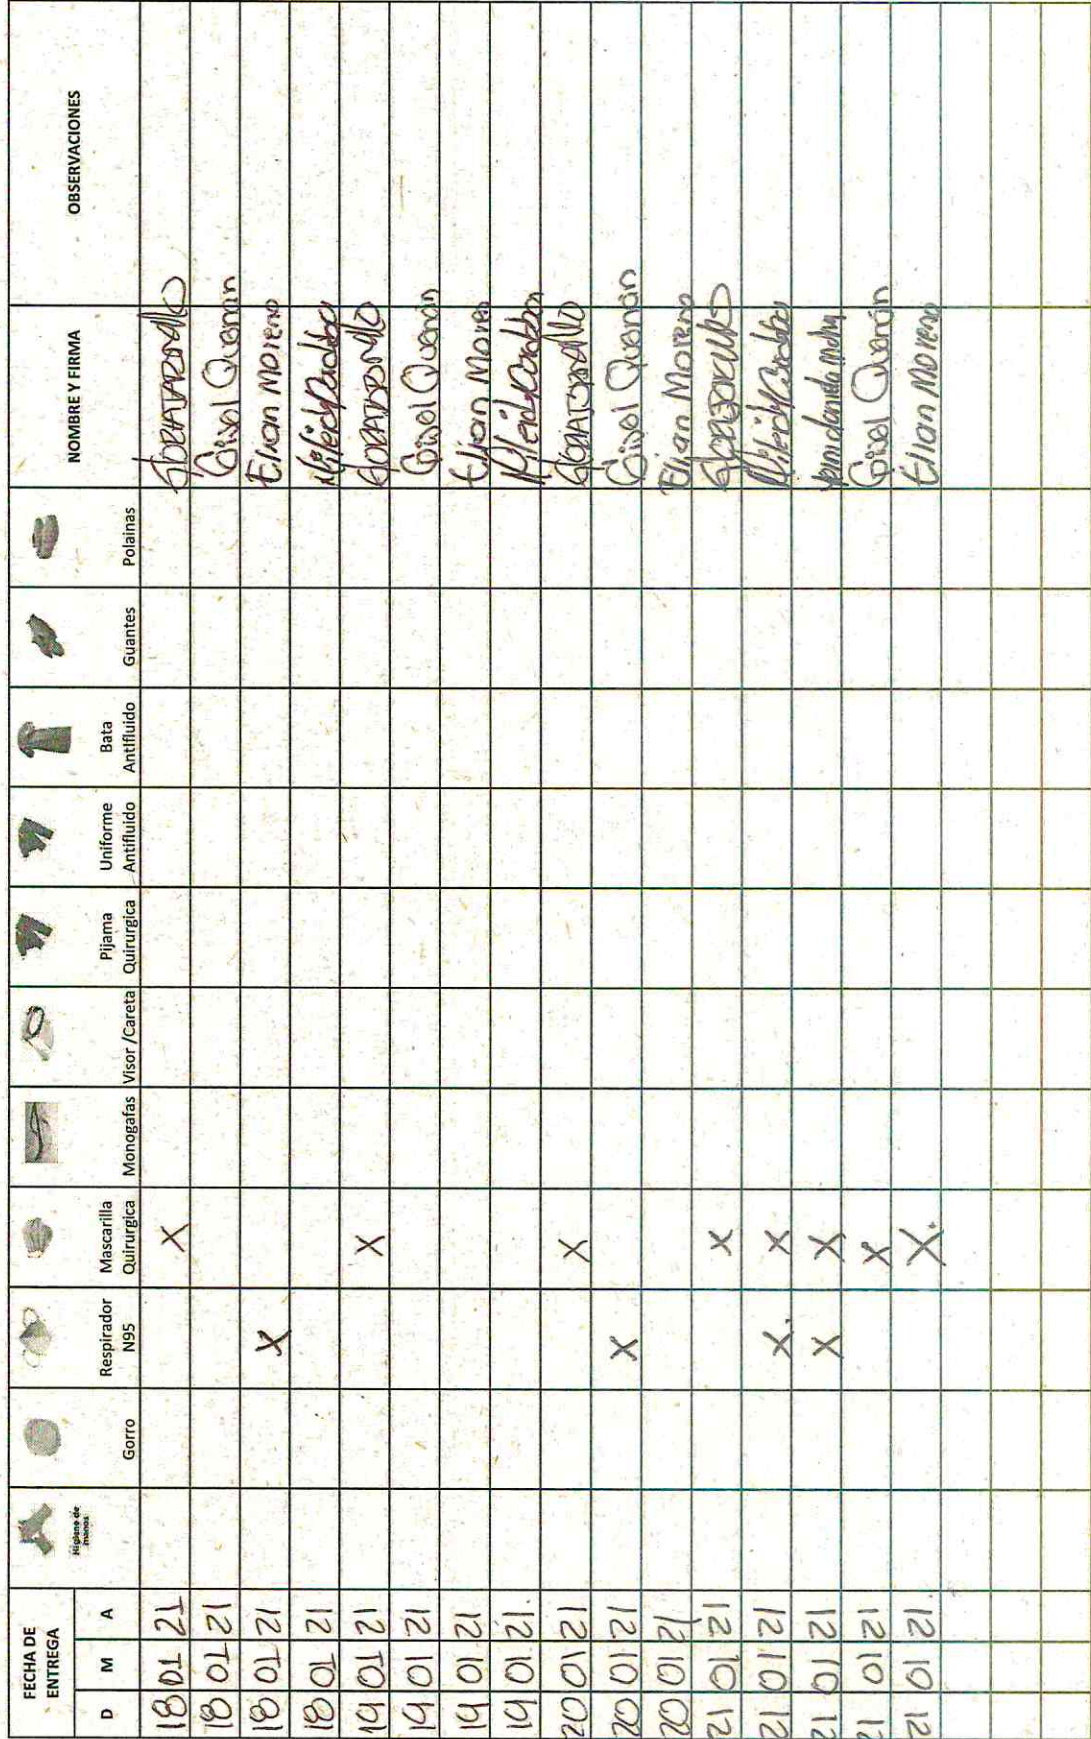 FECHA DE ENTREGA Higiene de manos Gorro Respirador N95 Mascarilla Quirurgica Monogafas Visor /Careta Pijama Quirurgica Uniforme Antifluido Bata Antifluido Guantes Polainas NOMBRE Y FIRMA OBSERVACIONES
D M A
18 01 21 X
18 01 21 Gisol Quenan
18 01 21 X Elian Moreno
18 01 21
19 01 21 X
19 01 21 Gisol Quenan
19 01 21 Elian Moreno
19 01 21.
20 01 21 X
20 01 21 X Gisol Quenan
20 01 21 Elian Moreno
21 01 21 X
21 01 21 X. X
21 01 21 X X
21 01 21 X Gisol Quenan
21 01 21. X. Elian Moreno